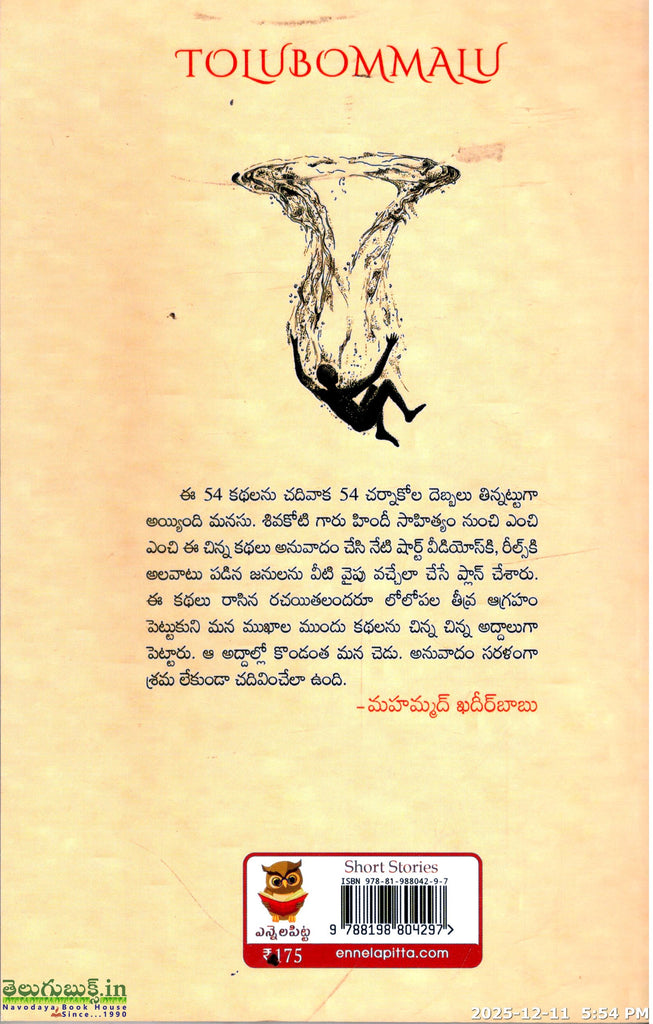 TOLUBOMMALU
ఈ 54 కథలను చదివాక 54 చర్నాకోల దెబ్బలు తిన్నట్టుగా
అయ్యింది మనసు. శివకోటి గారు హిందీ సాహిత్యం నుంచి ఎంచి
ఎంచి ఈ చిన్న కథలు అనువాదం చేసి నేటి షార్ట్ వీడియోస్‌కి, రీల్స్‌కి
అలవాటు పడిన జనులను వీటి వైపు వచ్చేలా చేసే ప్లాన్ చేశారు.
ఈ కథలు రాసిన రచయితలందరూ లోలోపల తీవ్ర ఆగ్రహం
పెట్టుకుని మన ముఖాల ముందు కథలను చిన్న చిన్న అద్దాలుగా
పెట్టారు. ఆ అద్దాల్లో కొండంత మన చెడు. అనువాదం సరళంగా
శ్రమ లేకుండా చదివించేలా ఉంది.
–మహమ్మద్ ఖదీర్‌బాబు
Short Stories
ISBN 978-81-988042-9-7
9 788198 804297 >
ఎన్నెలపిట్ట
₹175
ennelapitta.com
తెలుగుబుక్స్.in
Navodaya Book House
Since...1990
2025-12-11 5:54 PM